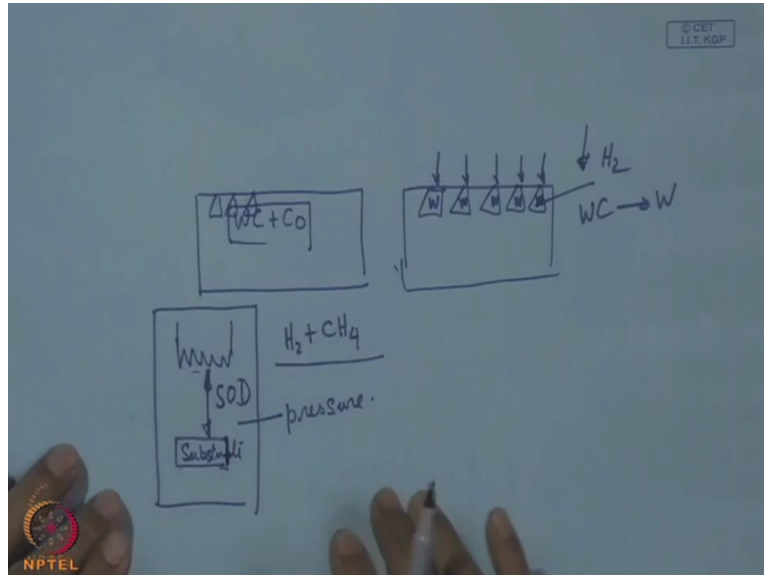 © CET
I.I.T. KGP
WC + Co
W W W W W
H₂
WC → W
H₂ + CH₄
SOD
pressure.
NPTEL